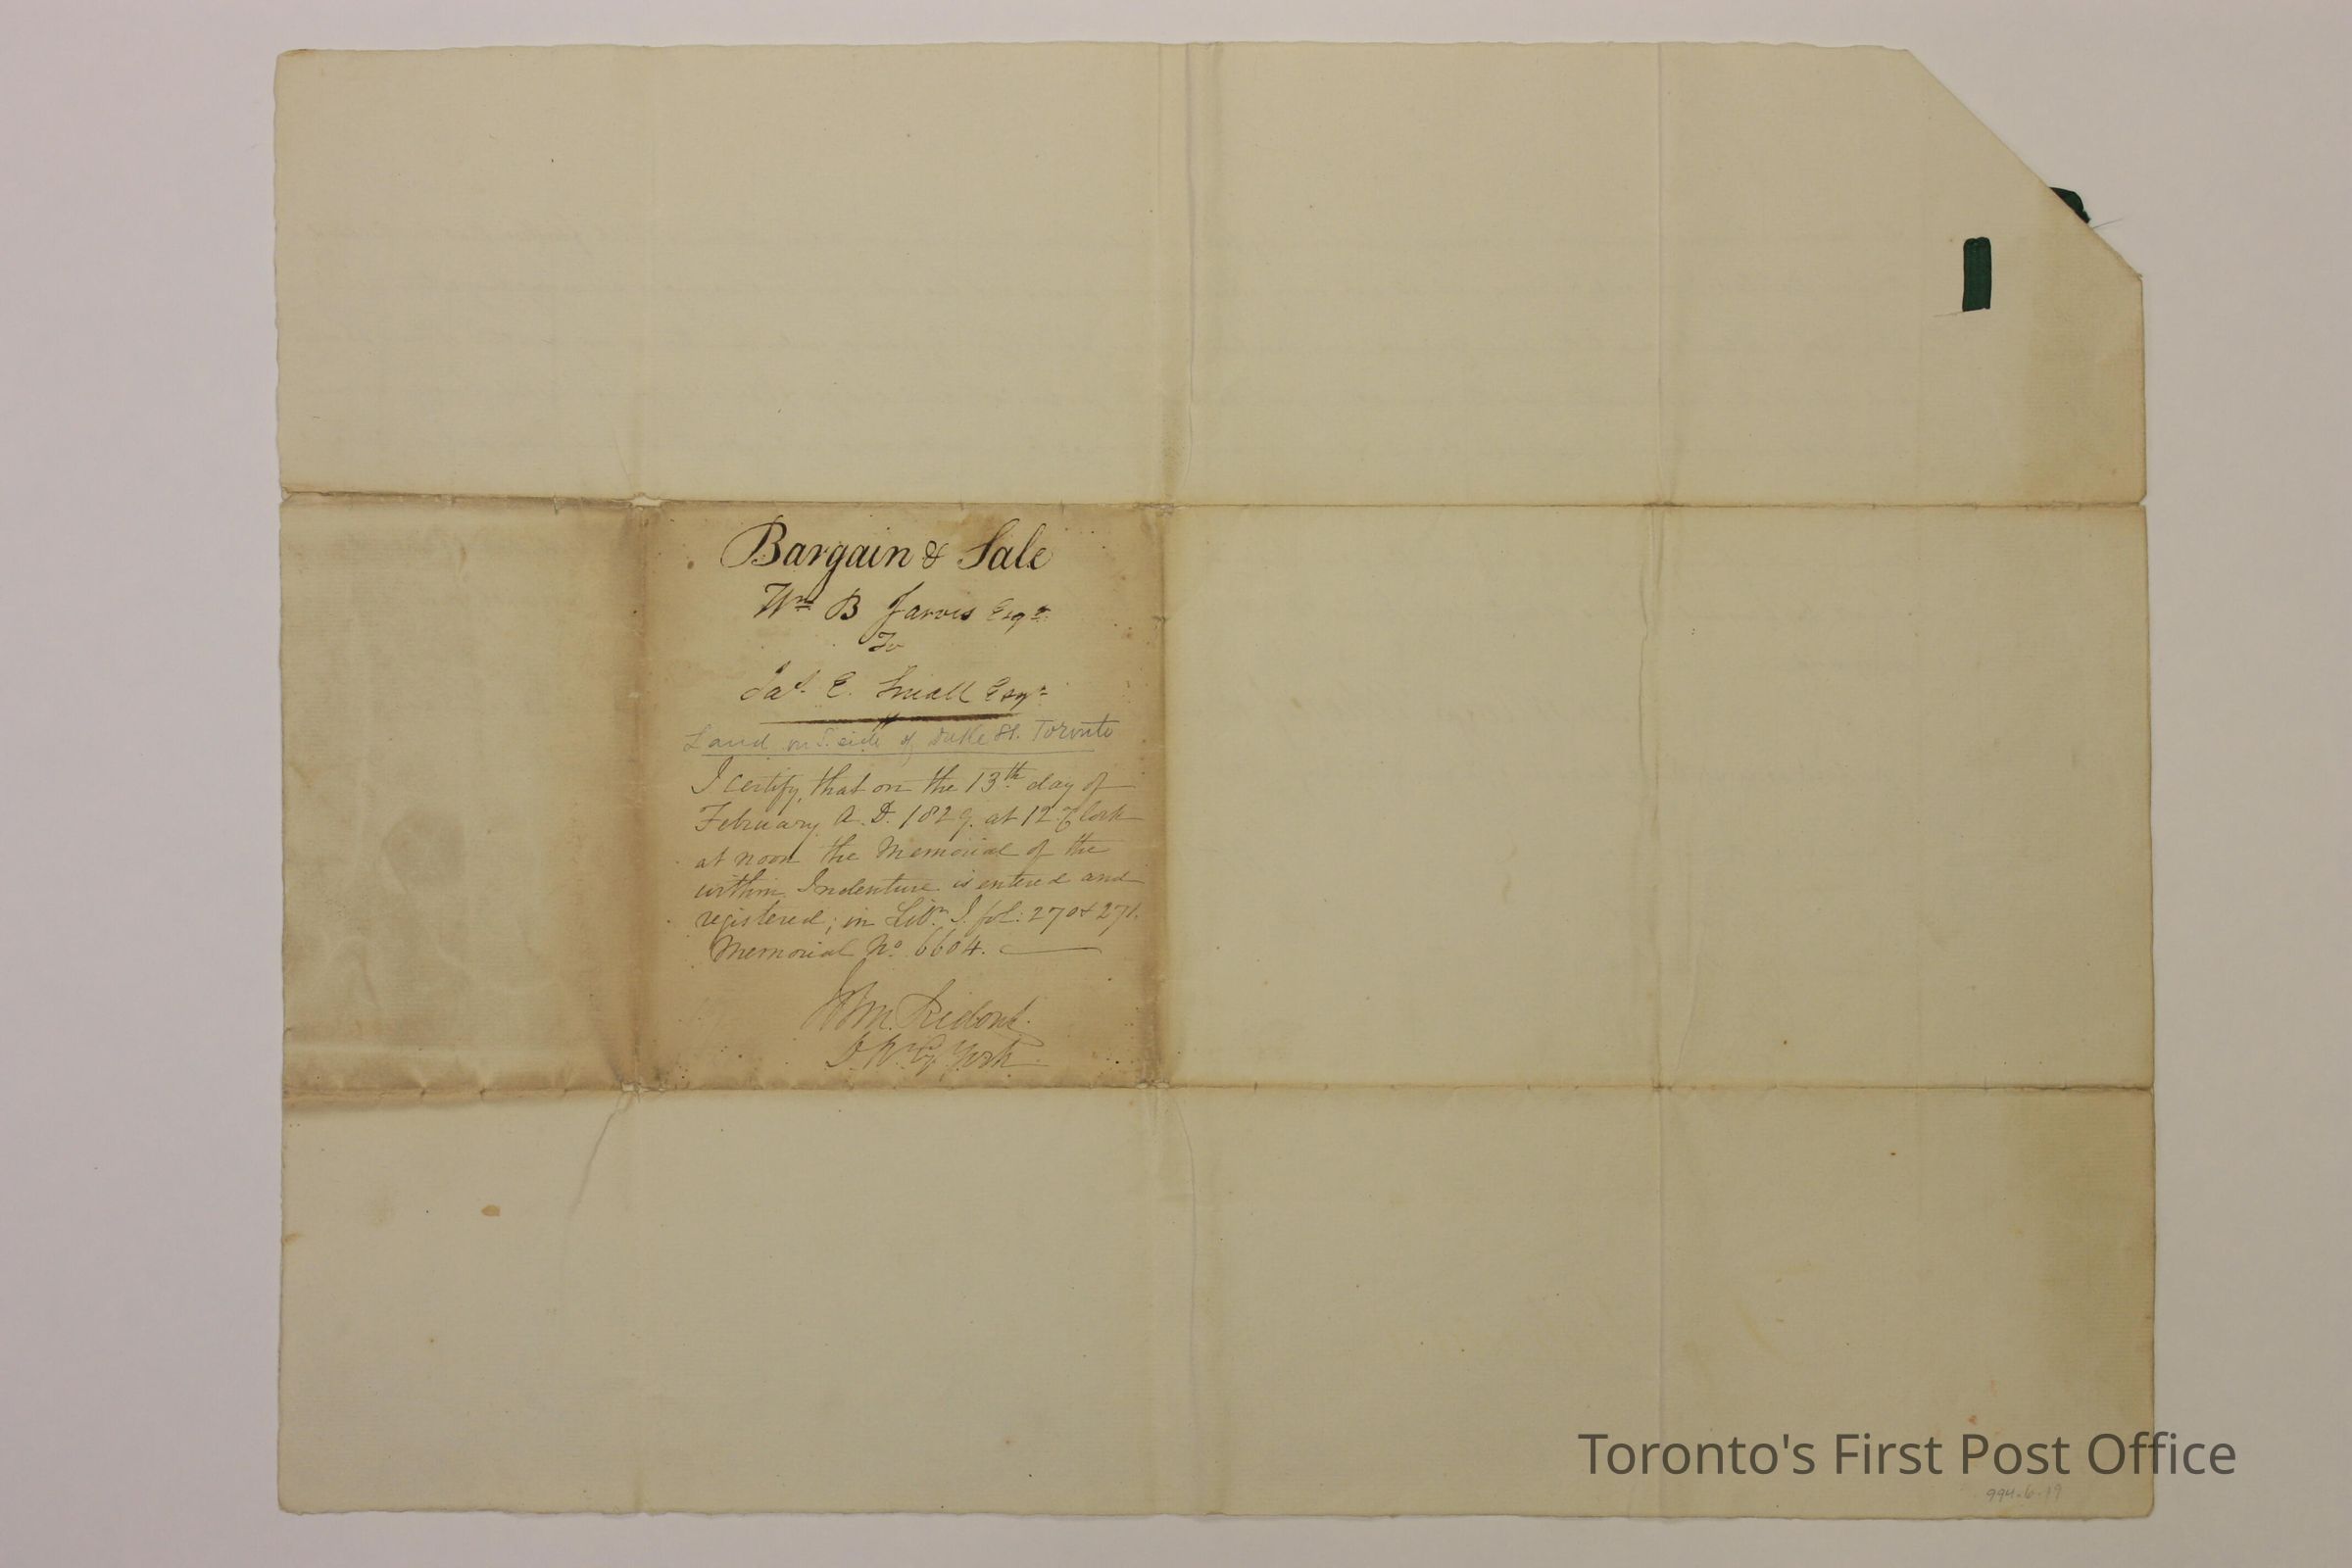 Bargain & Sale
Wm B Jarvis Esqr
To
Jas. E. Small Esqr
Land on S. side of Duke St. Toronto
I certify, that on the 13th day of
February A. D. 1829. at 12 O'Clock
at noon the Memorial of the
within Indenture is entered and
registered; in Libr. I. fol: 270 & 271.
Memorial No. 6604.
Wm. Ridout.
D. Rr. Cy. York
Toronto's First Post Office
994.6.19